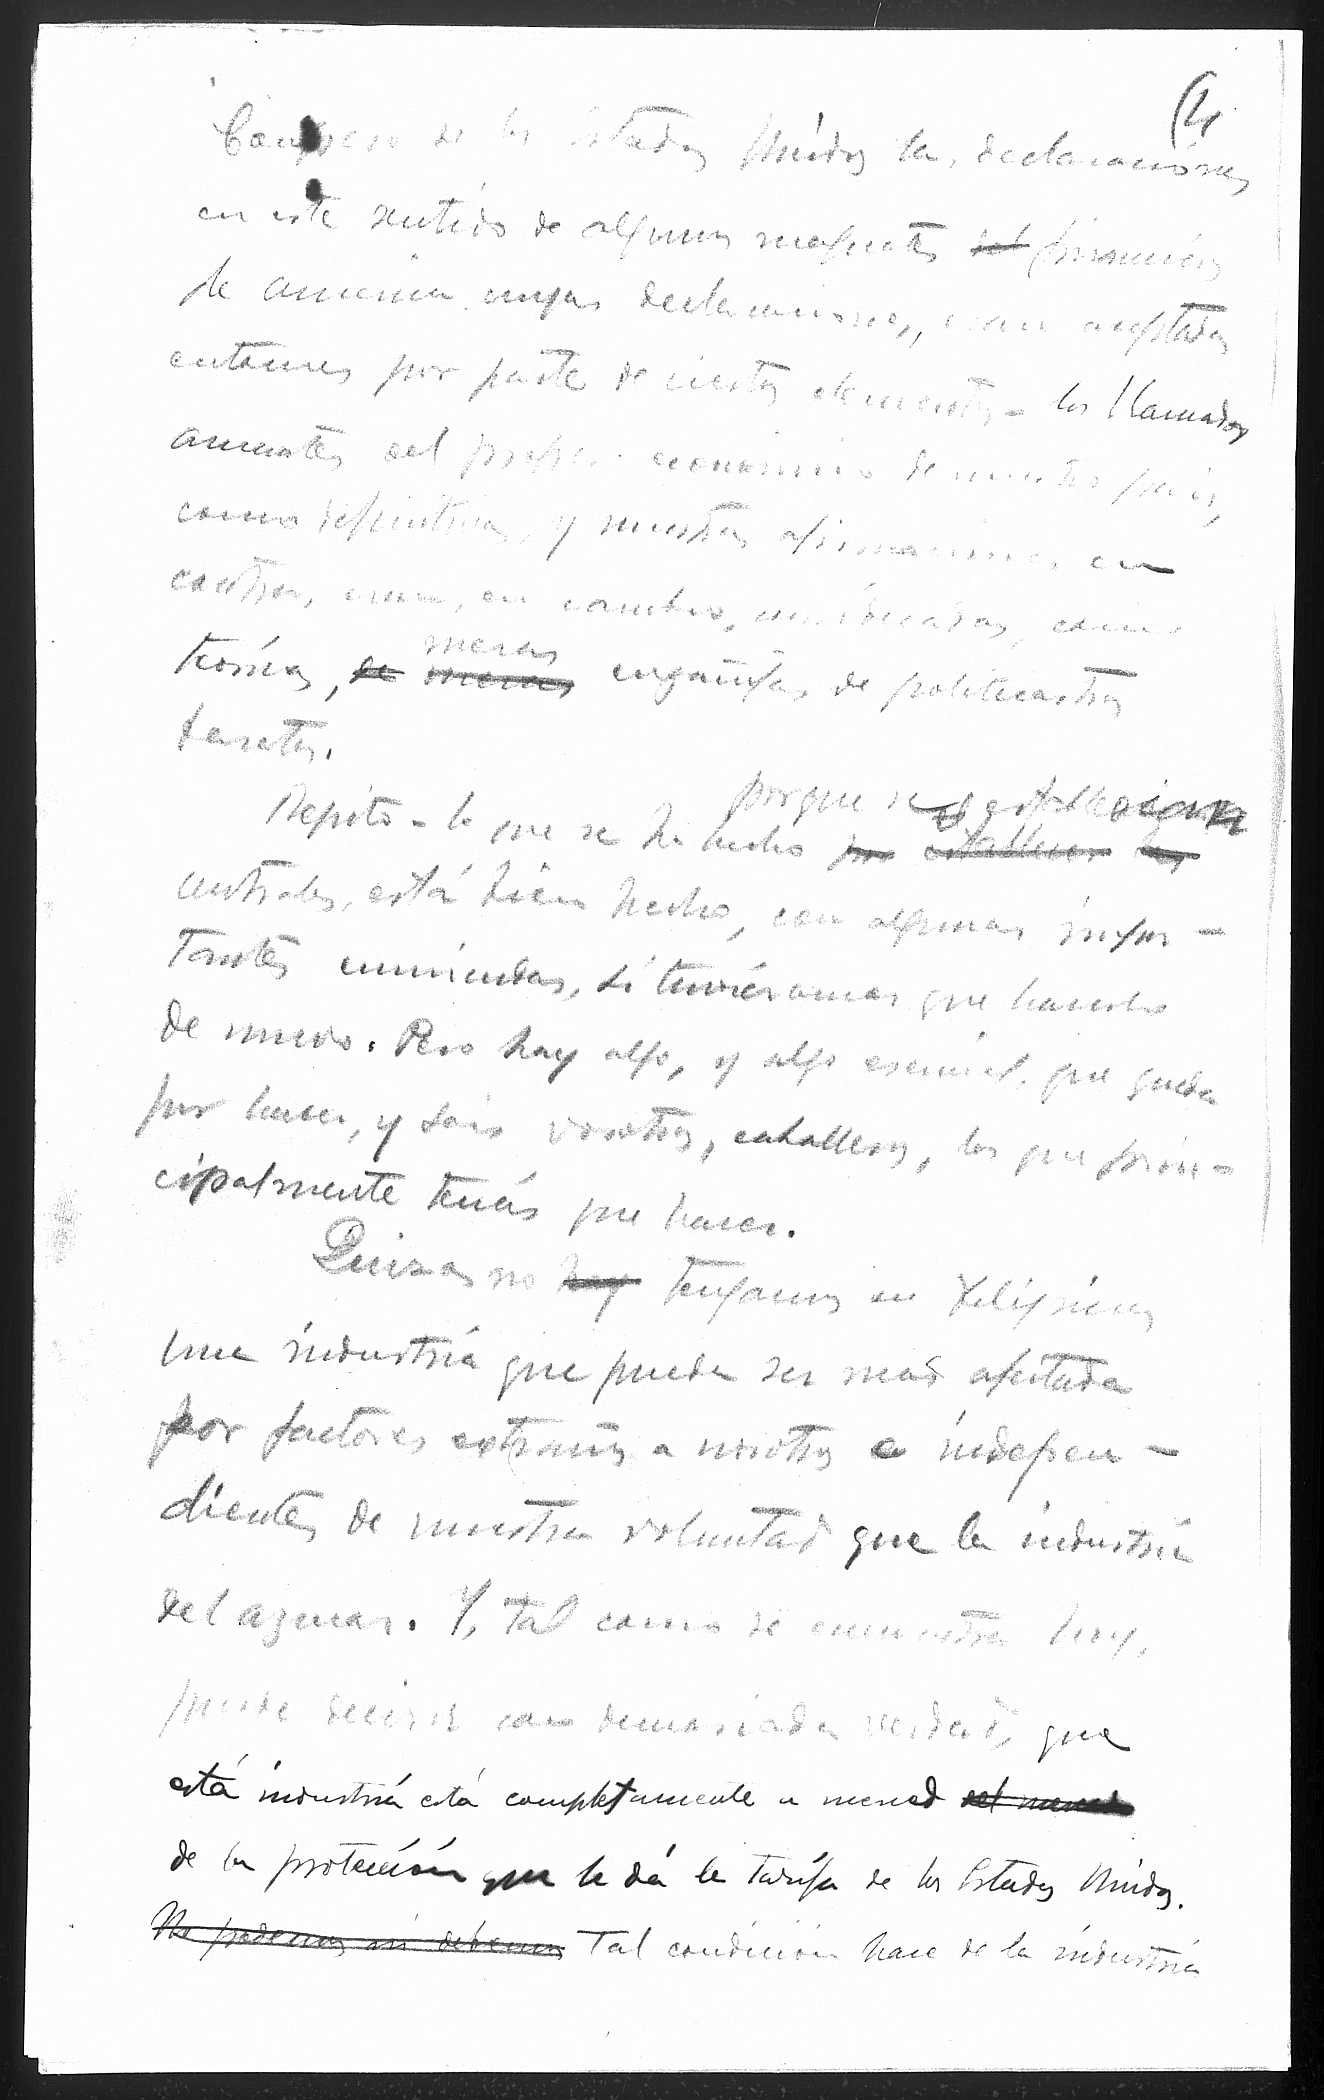 (4
Congreso de los Estados Unidos las declaraciones
en este sentido de algunos magnates del financieros
de America cuyas declaraciones, eran aceptadas
entonces por parte de ciertos elementos - los llamados
amantes del progreso economico de nuestro pais,
como definitivas, y nuestras afirmaciones en
contra, eran, en cambio, consideradas, como
teorías, de meras meras engañifas de politicastros
baratos.
Repito - lo que se ha hecho por establecer las porque se establecieran
centrales, está bien hecho, con algunas impor-
tantes enmiendas, si tuviéramos que hacerlo
de nuevo. Pero hay algo, y algo esencial, que queda
por hacer, y sois vosotros, caballeros, los que prin-
cipalmente tenéis que hacer.
Quizas no hay tengamos en Filipinas
una industria que pueda ser más afectada
por factores extraños a nosotros e indepen-
dientes de nuestra voluntad que la industria
del azucar. Y, tal como se encuentra hoy,
puede decirse con demasiada verdad, que
está industria está completamente a merced del merced
de la protección que le dá la tarifa de los Estados Unidos.
No podemos ni debemos Tal condición hace de la industria